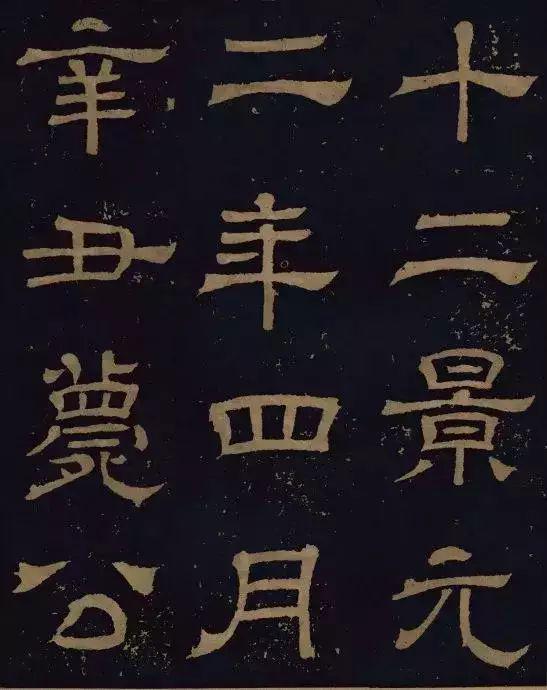 十二景元
二年四月
辛丑薨公